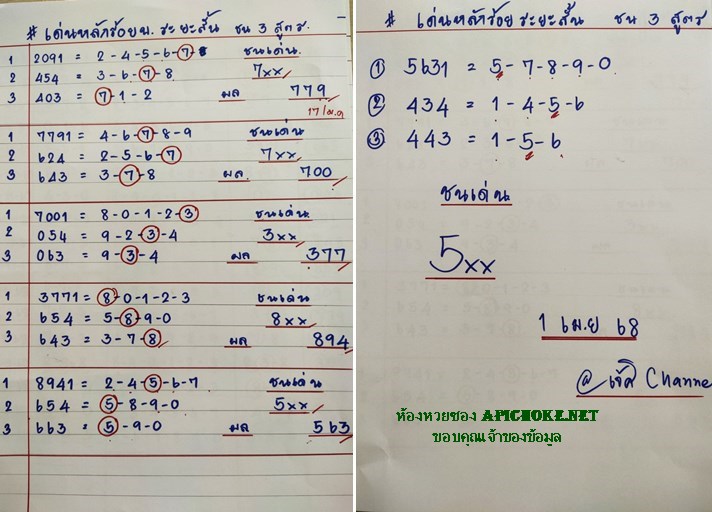 # เด่นหลักร้อยบน. ระยะสั้น ชน 3 สูตร.
1 2091 = 2-4-5-6-7 ชนเด่น.
2 454 = 3-6-7-8 7xx
3 403 = 7-1-2 ผล 779
17/ม.ค
1 7791 = 4-6-7-8-9 ชนเด่น
2 624 = 2-5-6-7 7xx
3 643 = 3-7-8 ผล. 700
1 7001 = 8-0-1-2-3 ชนเด่น.
2 054 = 9-2-3-4 3xx
3 063 = 9-3-4 ผล 377
1 3771 = 8-0-1-2-3 ชนเด่น
2 654 = 5-8-9-0 8xx
3 643 = 3-7-8 ผล 894
1 8941 = 2-4-5-6-7 ชนเด่น
2 654 = 5-8-9-0 5xx
3 663 = 5-9-0 ผล 563
# เด่นหลักร้อย ระยะสั้น ชน 3 สูตร
① 5631 = 5-7-8-9-0
② 434 = 1-4-5-6
③ 443 = 1-5-6
ชนเด่น
5xx
1 เม.ย 68
@ Channe
ห้องหวยซอง APICHOKE.NET
ขอบคุณเจ้าของข้อมูล